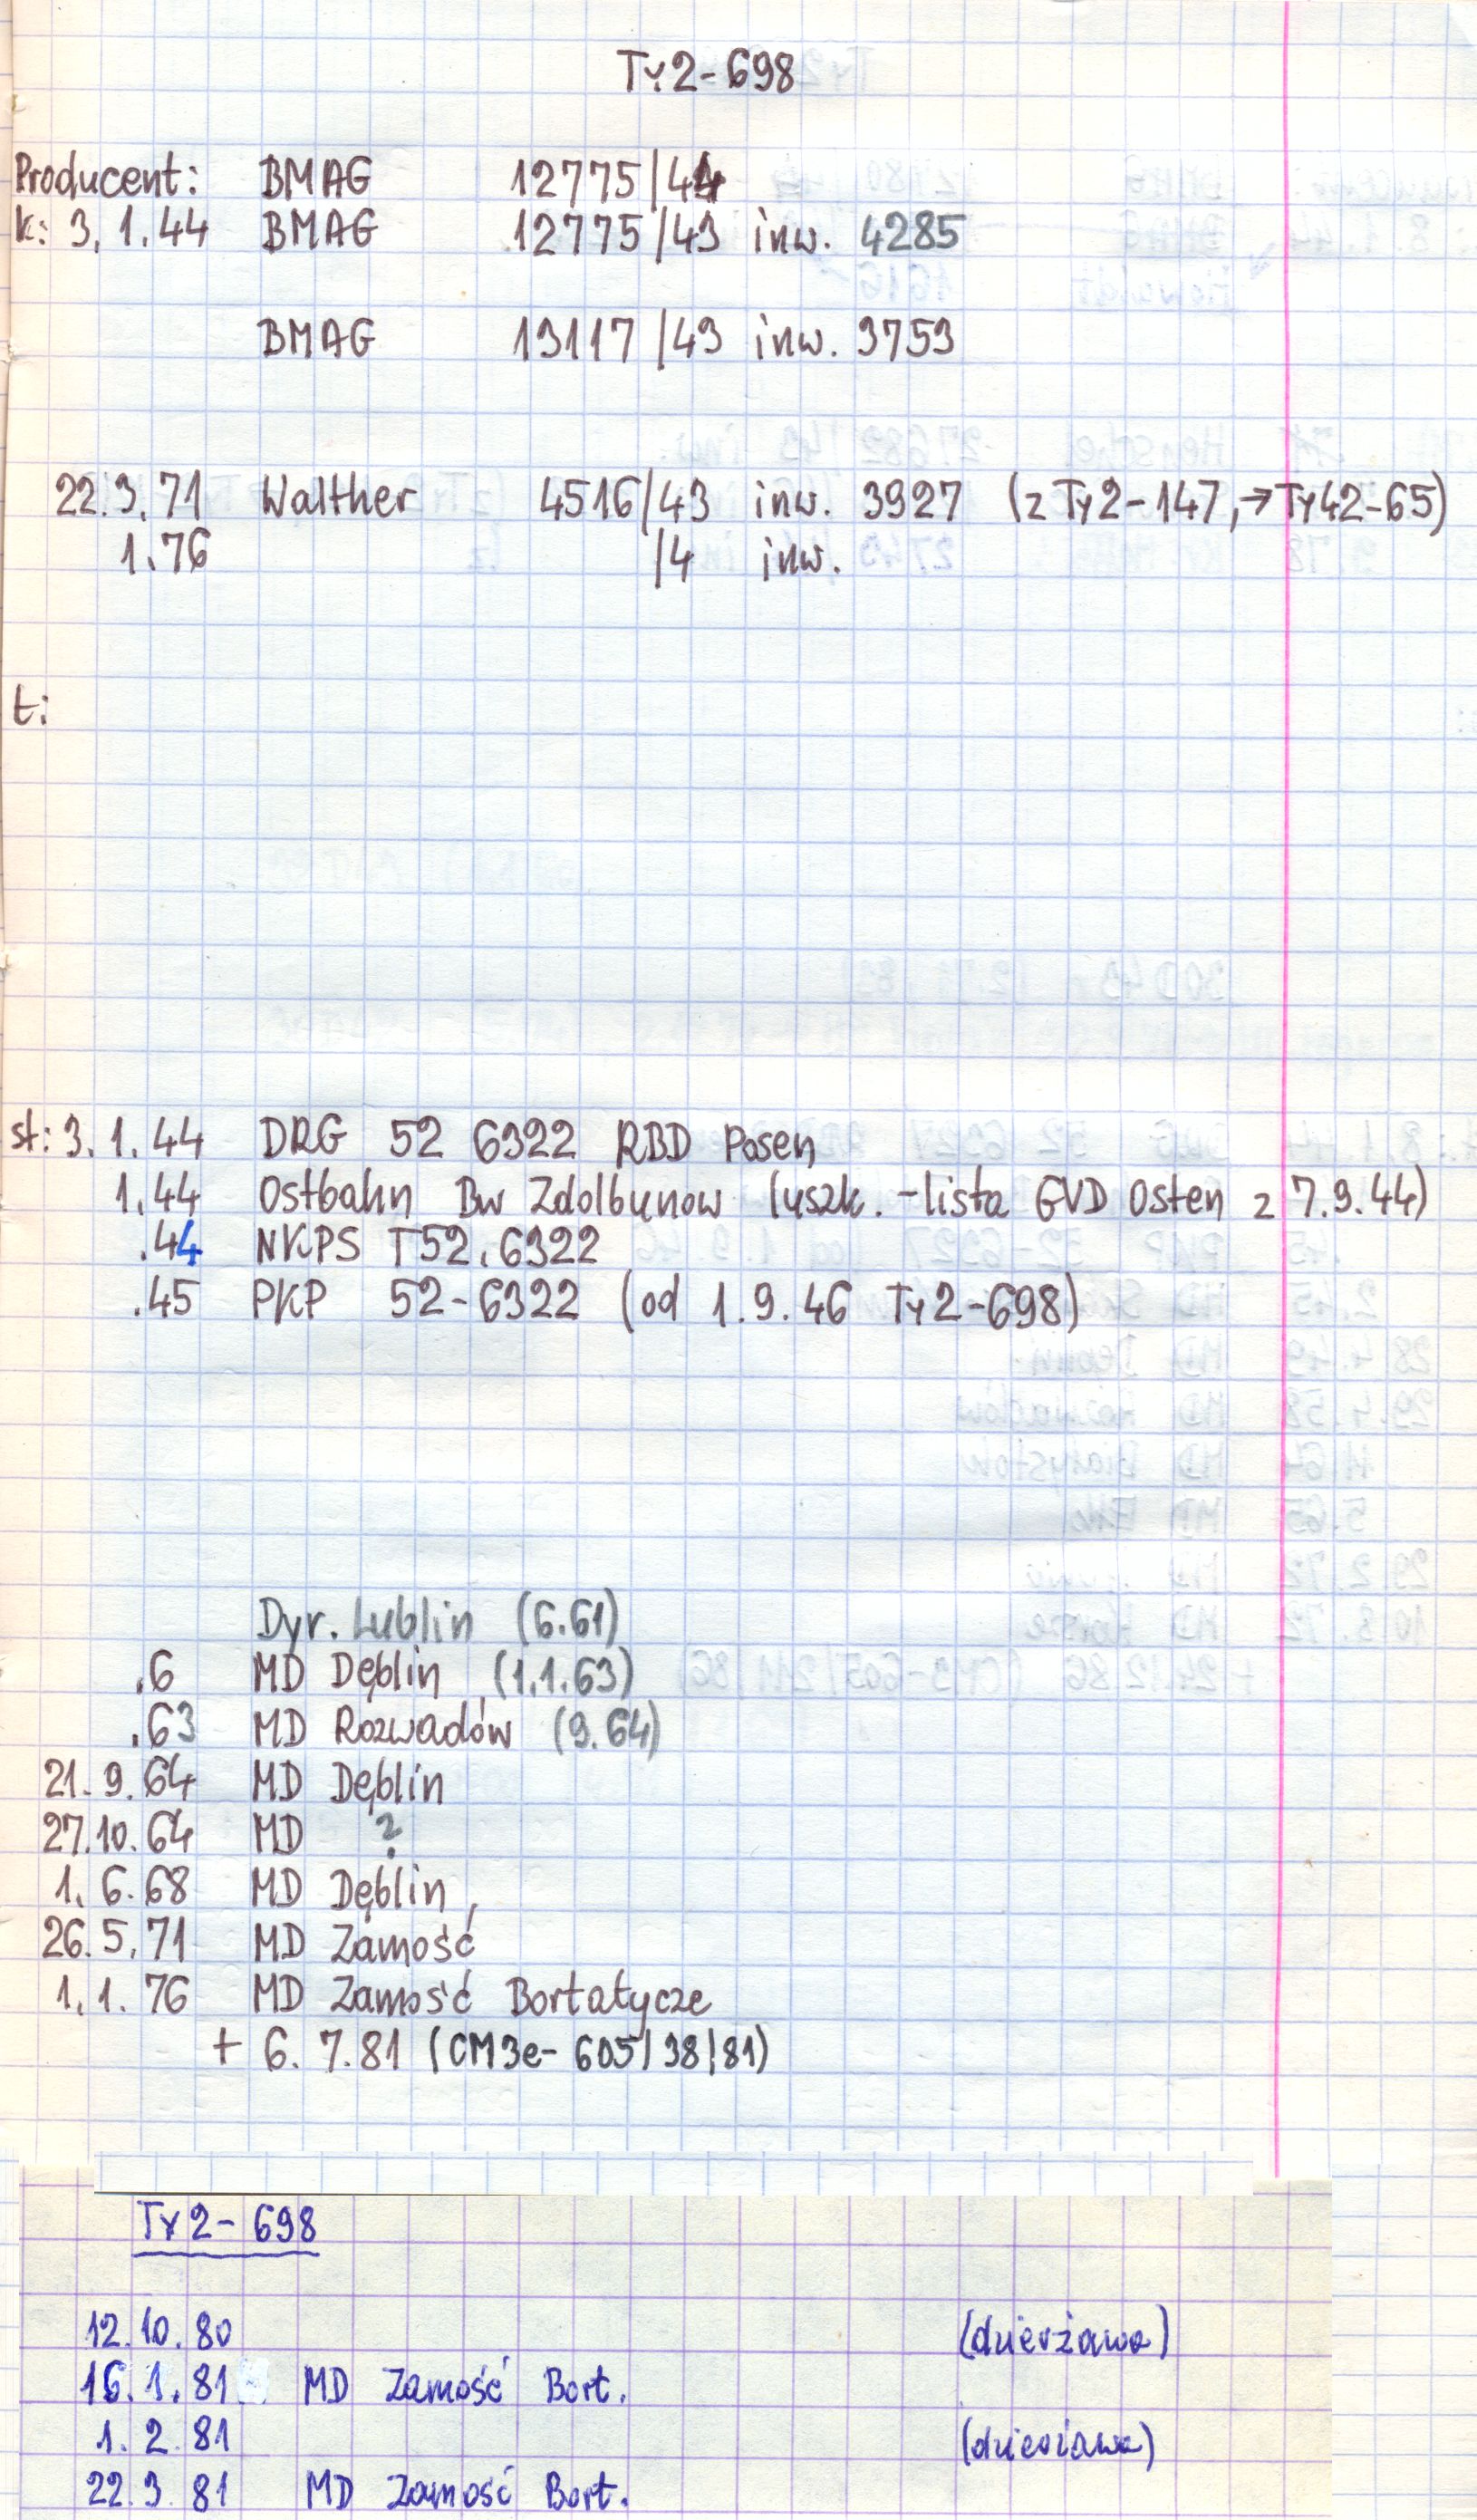 Ty2-698
Producent: BMAG 12775/44
k: 3.1.44 BMAG 12775/43 inw. 4285
BMAG 13117/43 inw. 3753
22.3.71 Walther 4516/43 inw. 3927 (z Ty2-147, →Ty42-65)
1.76 /4 inw.
t:
st: 3.1.44 DRG 52 6322 RBD Posen
1.44 Ostbahn Bw Zdolbunow (uszk. -lista GVD Osten z 7.9.44)
.44 NKPS T52.6322
.45 PKP 52-6322 (od 1.9.46 Ty2-698)
Dyr. Lublin (6.61)
.6 MD Dęblin (1.1.63)
.63 MD Rozwadów (9.64)
21.9.64 MD Dęblin
27.10.64 MD ?
1.6.68 MD Dęblin
26.5.71 MD Zamość
1.1.76 MD Zamość Bortatycze
+ 6.7.81 (CM3e-605/38/81)
Ty2-698
12.10.80 (dzierżawa)
16.1.81 MD Zamość Bort.
1.2.81 (dzierżawa)
22.3.81 MD Zamość Bort.